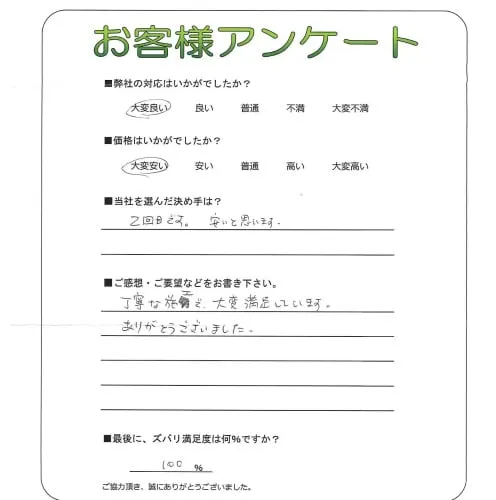 お客様アンケート
■弊社の対応はいかがでしたか？
大変良い 良い 普通 不満 大変不満
■価格はいかがでしたか？
大変安い 安い 普通 高い 大変高い
■当社を選んだ決め手は？
2回目です。 安いと思います。
■ご感想・ご要望などをお書き下さい。
丁寧な施工で、大変満足しています。
ありがとうございました。
■最後に、ズバリ満足度は何%ですか？
100 %
ご協力頂き、誠にありがとうございました。